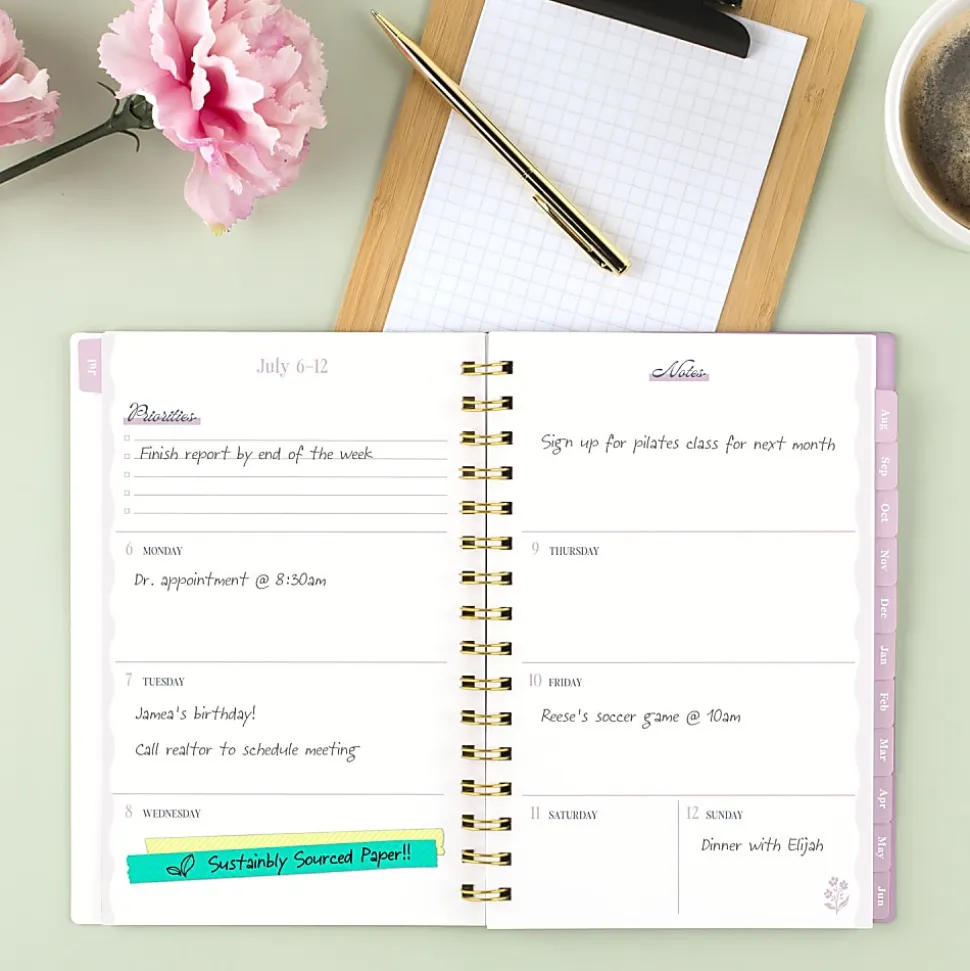 Jul
July 6-12
Priorities
Finish report by end of the week
6 MONDAY
Dr. appointment @ 8:30am
7 TUESDAY
Jamea's birthday!
Call realtor to schedule meeting
8 WEDNESDAY
Sustainbly Sourced Paper!!
Notes
Sign up for pilates class for next month
9 THURSDAY
10 FRIDAY
Reese's soccer game @ 10am
11 SATURDAY
12 SUNDAY
Dinner with Elijah
Aug
Sep
Oct
Nov
Dec
Jan
Feb
Mar
Apr
May
Jun